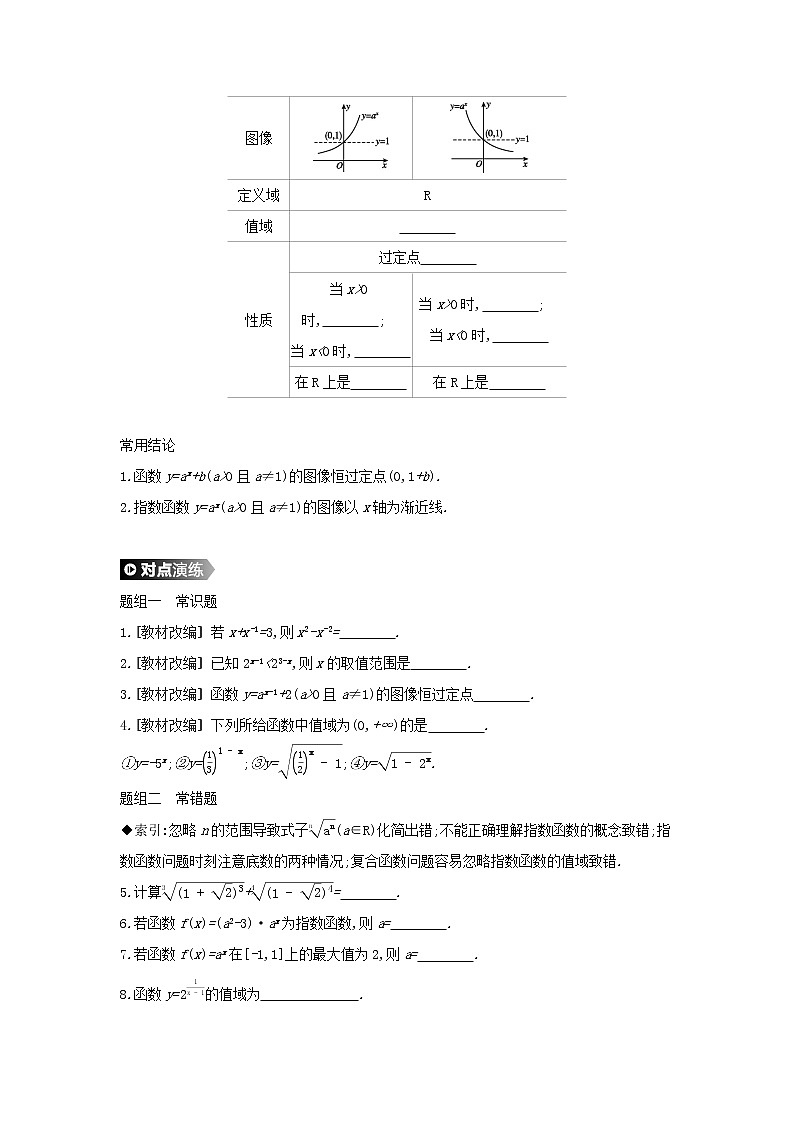 图像
y
y=aˣ
(0,1)
y=1
O
x
y=aˣ
y
(0,1)
y=1
O
x
定义域 R
值域 ________
性质
过定点________
当x>0
时,________;
当x<0时,________
当x>0时,________;
当x<0时,________
在R上是________ 在R上是________
常用结论
1.函数y=aˣ+b(a>0且a≠1)的图像恒过定点(0,1+b).
2.指数函数y=aˣ(a>0且a≠1)的图像以x轴为渐近线.
对点演练
题组一 常识题
1.[教材改编] 若x+x⁻¹=3,则x²-x⁻²=________.
2.[教材改编] 已知2ˣ⁻¹<2³⁻ˣ,则x的取值范围是________.
3.[教材改编] 函数y=aˣ⁻¹+2(a>0且a≠1)的图像恒过定点________.
4.[教材改编] 下列所给函数中值域为(0,+∞)的是________.
①y=-5ˣ;②y=(1/3)^(1-x);③y=√((1/2)^x-1);④y=√(1-2ˣ).
题组二 常错题
◆索引:忽略n的范围导致式子ⁿ√aⁿ(a∈R)化简出错;不能正确理解指数函数的概念致错;指
数函数问题时刻注意底数的两种情况;复合函数问题容易忽略指数函数的值域致错.
5.计算³√((1+√2)³)+⁴√((1-√2)⁴)=________.
6.若函数f(x)=(a²-3)·aˣ为指数函数,则a=________.
7.若函数f(x)=aˣ在[-1,1]上的最大值为2,则a=________.
8.函数y=2^(1/(x-1))的值域为______________.